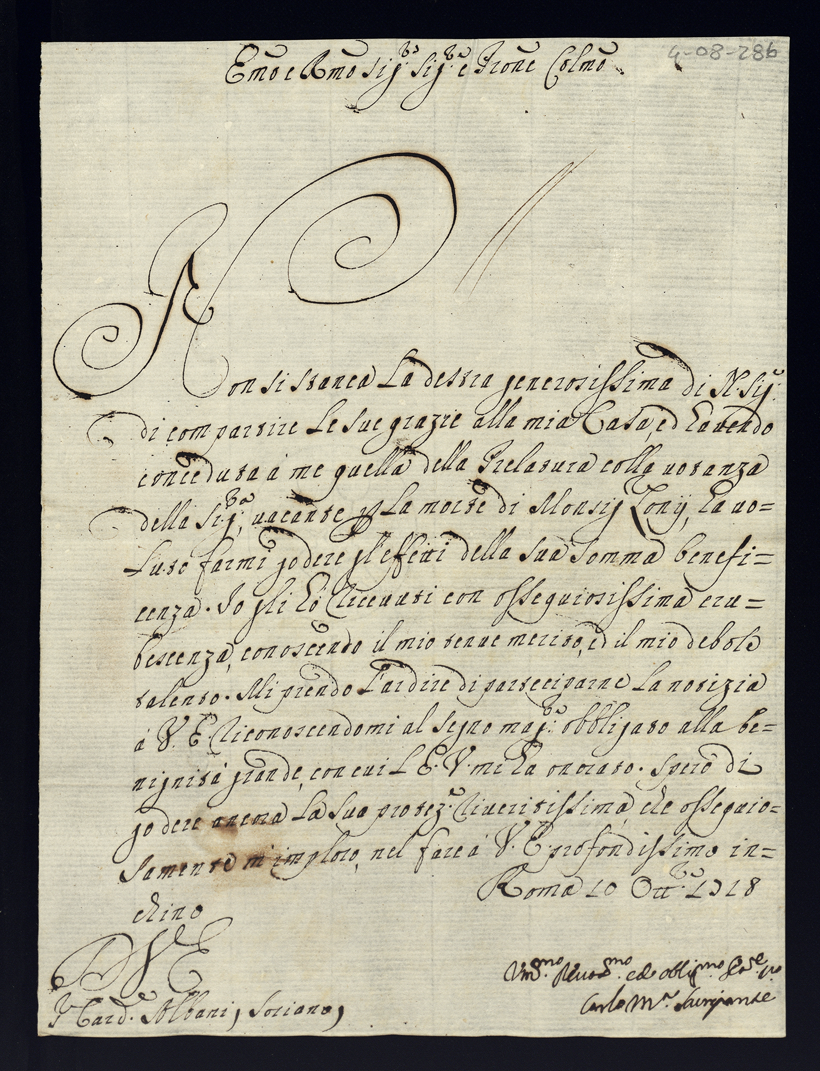 4-08-286
Emo e Rmo Sigre Sigre e Prone Colmo
Non si stanca La destra generosissima di N. Sigre
di compartire Le Sue grazie alla mia Casa, ed havendo
conceduta à me quella della Prelatura colla votanza
della Sigra, vacante p La morte di Monsig
luto farmi godere gl'effetti della Sua Somma benefi=
cenza. Io gli hò ricevuti con ossequiosissima eru=
bescenza, conoscendo il mio tenue merito, ed il mio debole
talento. Mi prendo L'ardire di participarne La notizia
à V. E. riconoscendomi al segno magre obbligato alla be=
nignità grande, con cui L'E. V. mi hà onorato. Spero di
godere ancora La Sua protez.e riveritissima, che ossequio=
samente m'imploro, nel fare à V. E. profondissimo in=
chino
Roma 10 Ottre 1718
D V E
Sr Card. Albani, Soriano,
Vmo Devmo ed oblimo
Carlo Ma